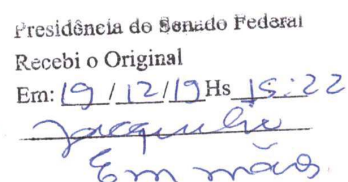 Presidência do Senado Federal
Recebi o Original
Em: 19/12/19 Hs 15:22
Em mãos